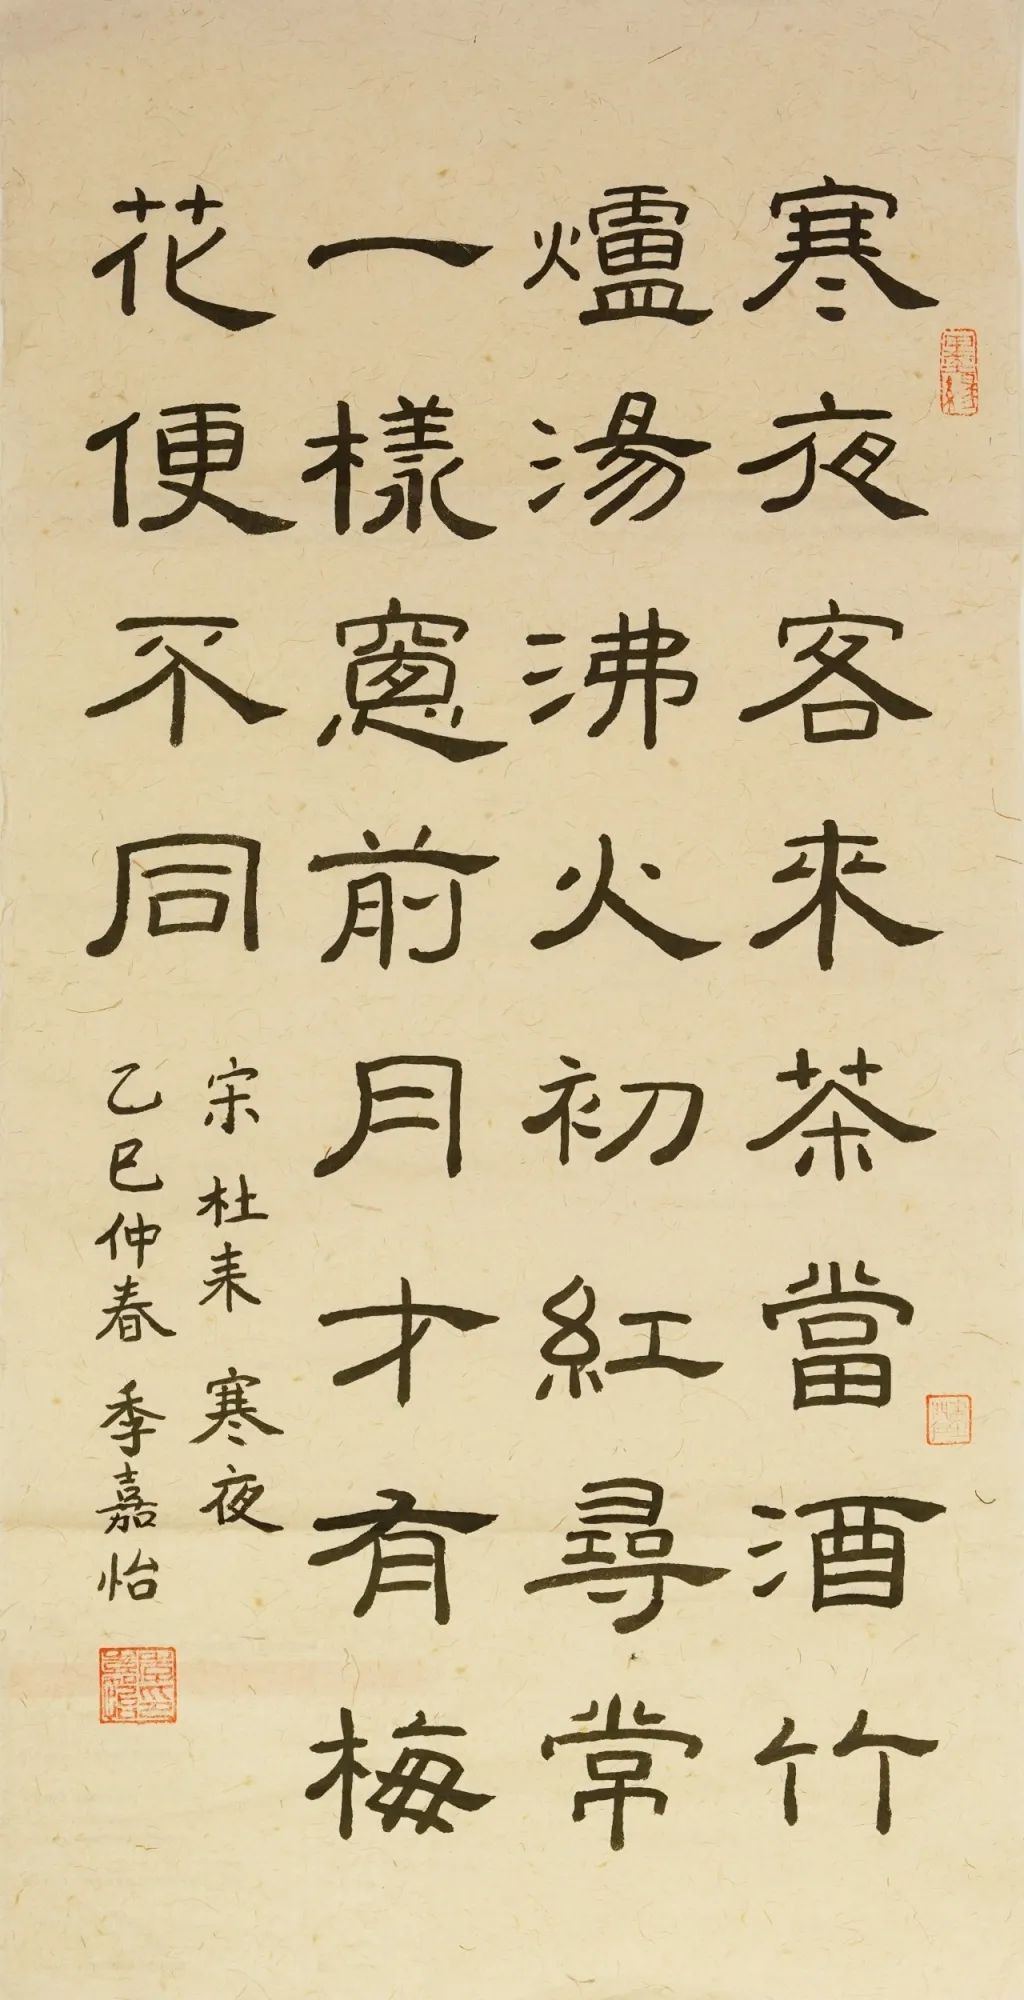 寒夜客來茶當酒竹
爐湯沸火初紅尋常
一樣窻前月才有梅
花便不同
宋杜耒寒夜
乙巳仲春季嘉怡